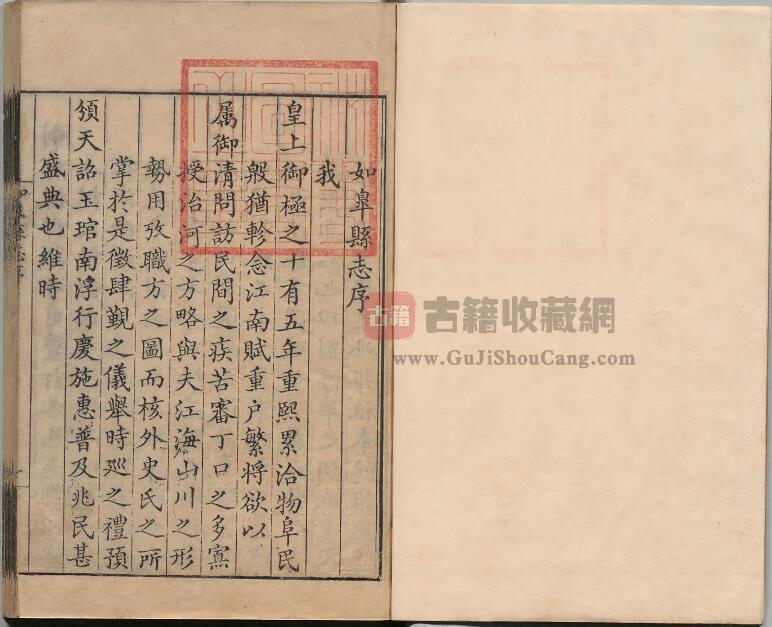 如臯縣志序
我
皇上御極之十有五年重熙累洽物阜民
殷猶軫念江南賦重户繁將欲以
属御清問訪民間之疾苦審丁口之多寡
授治河之方略與夫江海山川之形
勢用攷職方之圖而核外史氏之所
掌於是徵肆覲之儀舉時廵之禮預
頒天詔玉琯南浮行慶施惠普及兆民甚
盛典也維時
古籍
古籍收藏網
www.GuJiShouCang.com